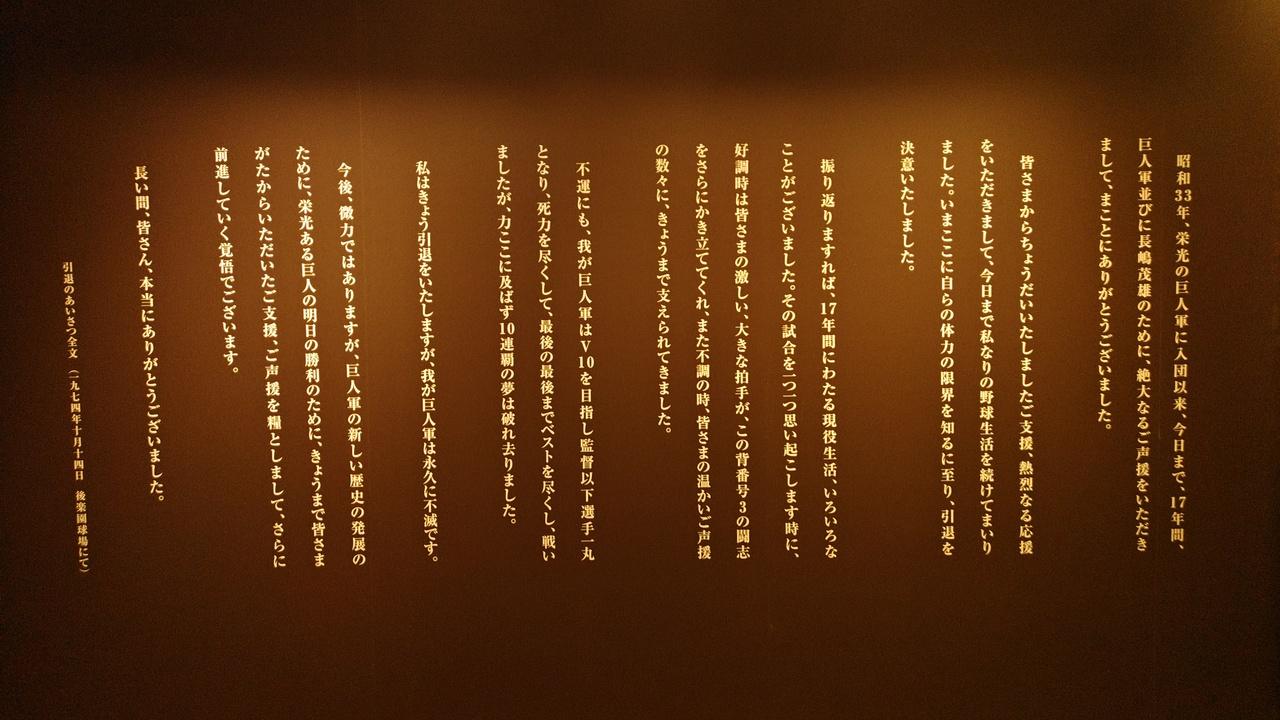 昭和33年、栄光の巨人軍に入団以来、今日まで、17年間、
巨人軍並びに長嶋茂雄のために、絶大なるご声援をいただき
まして、まことにありがとうございました。
皆さまからちょうだいいたしましたご支援、熱烈なる応援
をいただきまして、今日まで私なりの野球生活を続けてまいり
ました。いまここに自らの体力の限界を知るに至り、引退を
決意いたしました。
振り返りますれば、17年間にわたる現役生活、いろいろな
ことがございました。その試合を一つ一つ思い起こします時に、
好調時は皆さまの激しい、大きな拍手が、この背番号3の闘志
をさらにかき立ててくれ、また不調の時、皆さまの温かいご声援
の数々に、きょうまで支えられてきました。
不運にも、我が巨人軍はV10を目指し監督以下選手一丸
となり、死力を尽くして、最後の最後までベストを尽くし、戦い
ましたが、力ここに及ばず10連覇の夢は破れ去りました。
私はきょう引退をいたしますが、我が巨人軍は永久に不滅です。
今後、微力ではありますが、巨人軍の新しい歴史の発展の
ために、栄光ある巨人の明日の勝利のために、きょうまで皆さま
がたからいただいたご支援、ご声援を糧としまして、さらに
前進していく覚悟でございます。
長い間、皆さん、本当にありがとうございました。
引退のあいさつ全文（一九七四年十月十四日　後楽園球場にて）